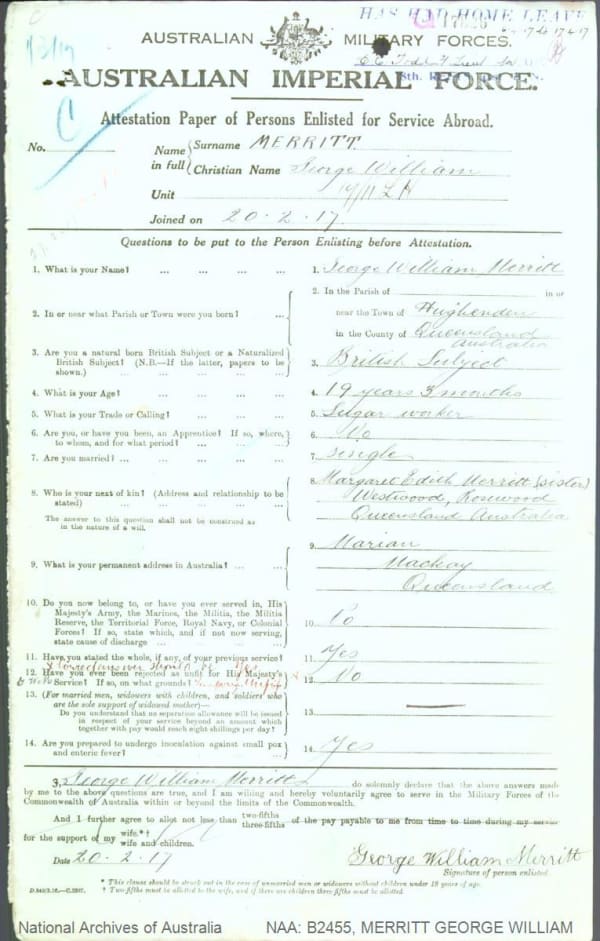 HAS HAD HOME LEAVE
AUSTRALIAN MILITARY FORCES.
AUSTRALIAN IMPERIAL FORCE.
Attestation Paper of Persons Enlisted for Service Abroad.
No.
Name in full { Surname MERRITT
Christian Name George William
Unit
Joined on 20.2.17
Questions to be put to the Person Enlisting before Attestation.
1. What is your Name? ... ... ... ... 1. George William Merritt
2. In or near what Parish or Town were you born? ... 2. In the Parish of in or
near the Town of Hughenden
in the County of Queensland
Australia
3. Are you a natural born British Subject or a Naturalized
British Subject? (N.B.—If the latter, papers to be
shown.) ... ... ... ... 3. British Subject
4. What is your Age? ... ... ... ... 4. 19 years 3 months
5. What is your Trade or Calling? ... ... ... 5. Sugar worker
6. Are you, or have you been, an Apprentice? If so, where,
to whom, and for what period? ... ... ... 6. No
7. Are you married? ... ... ... ... 7. single
8. Who is your next of kin? (Address and relationship to be
stated) ... ... ... ...
The answer to this question shall not be construed as
in the nature of a will.
8. Margaret Edith Merritt (sister)
Westwood, Rosewood
Queensland Australia
9. What is your permanent address in Australia? ... ... 9. Marian
Mackay
Queensland
10. Do you now belong to, or have you ever served in, His
Majesty's Army, the Marines, the Militia, the Militia
Reserve, the Territorial Force, Royal Navy, or Colonial
Forces? If so, state which, and if not now serving,
state cause of discharge ... ... ... 10. No
11. Have you stated the whole, if any, of your previous service? 11. Yes
12. Have you ever been rejected as unfit for His Majesty's
Service? If so, on what grounds? 12. No
13. (For married men, widowers with children, and soldiers who
are the sole support of widowed mother)—
Do you understand that no separation allowance will be issued
in respect of your service beyond an amount which
together with pay would reach eight shillings per day? 13. —
14. Are you prepared to undergo inoculation against small pox
and enteric fever? ... ... ... 14. Yes
George William Merritt do solemnly declare that the above answers made
by me to the above questions are true, and I am willing and hereby voluntarily agree to serve in the Military Forces of the
Commonwealth of Australia within or beyond the limits of the Commonwealth.
And I further agree to allot not less than two-fifths three-fifths of the pay payable to me from time to time during my service
for the support of my wife.*† wife and children.
Date 20.2.17
George William Merritt
Signature of person enlisted.
* This clause should be struck out in the case of unmarried men or widowers without children under 18 years of age.
† Two-fifths must be allotted to the wife, and if there are children three-fifths must be allotted.
National Archives of Australia NAA: B2455, MERRITT GEORGE WILLIAM